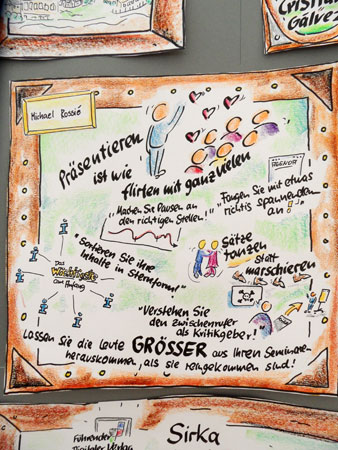 CRISTIÁN
GÁLVEZ
Michael Rossié
Präsentieren
ist wie
flirten mit ganz vielen
AGENDA
"Machen Sie Pausen an
den richtigen Stellen!"
"Fangen Sie mit etwas
richtig spannendem
an!"
"Sortieren Sie ihre
Inhalte in Sternform!"
Das
Wichtigste
am Anfang
Sätze
tanzen
statt
marschieren
"Verstehen Sie
den Zwischenrufer
als Kritikgeber!"
Lassen Sie die Leute GRÖSSER aus Ihren Seminaren
herauskommen, als sie reingekommen sind!
Führender
Digitaler Verlag
Sirka